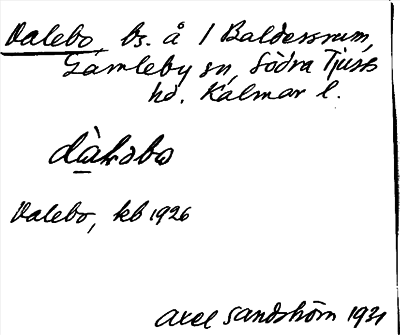 Dalebo, bs. å 1 Baldersrum,
Gamleby sn, Södra Tjusts
hd. Kalmar l.
Dalebo, kb 1926
Axel Sandström 1931